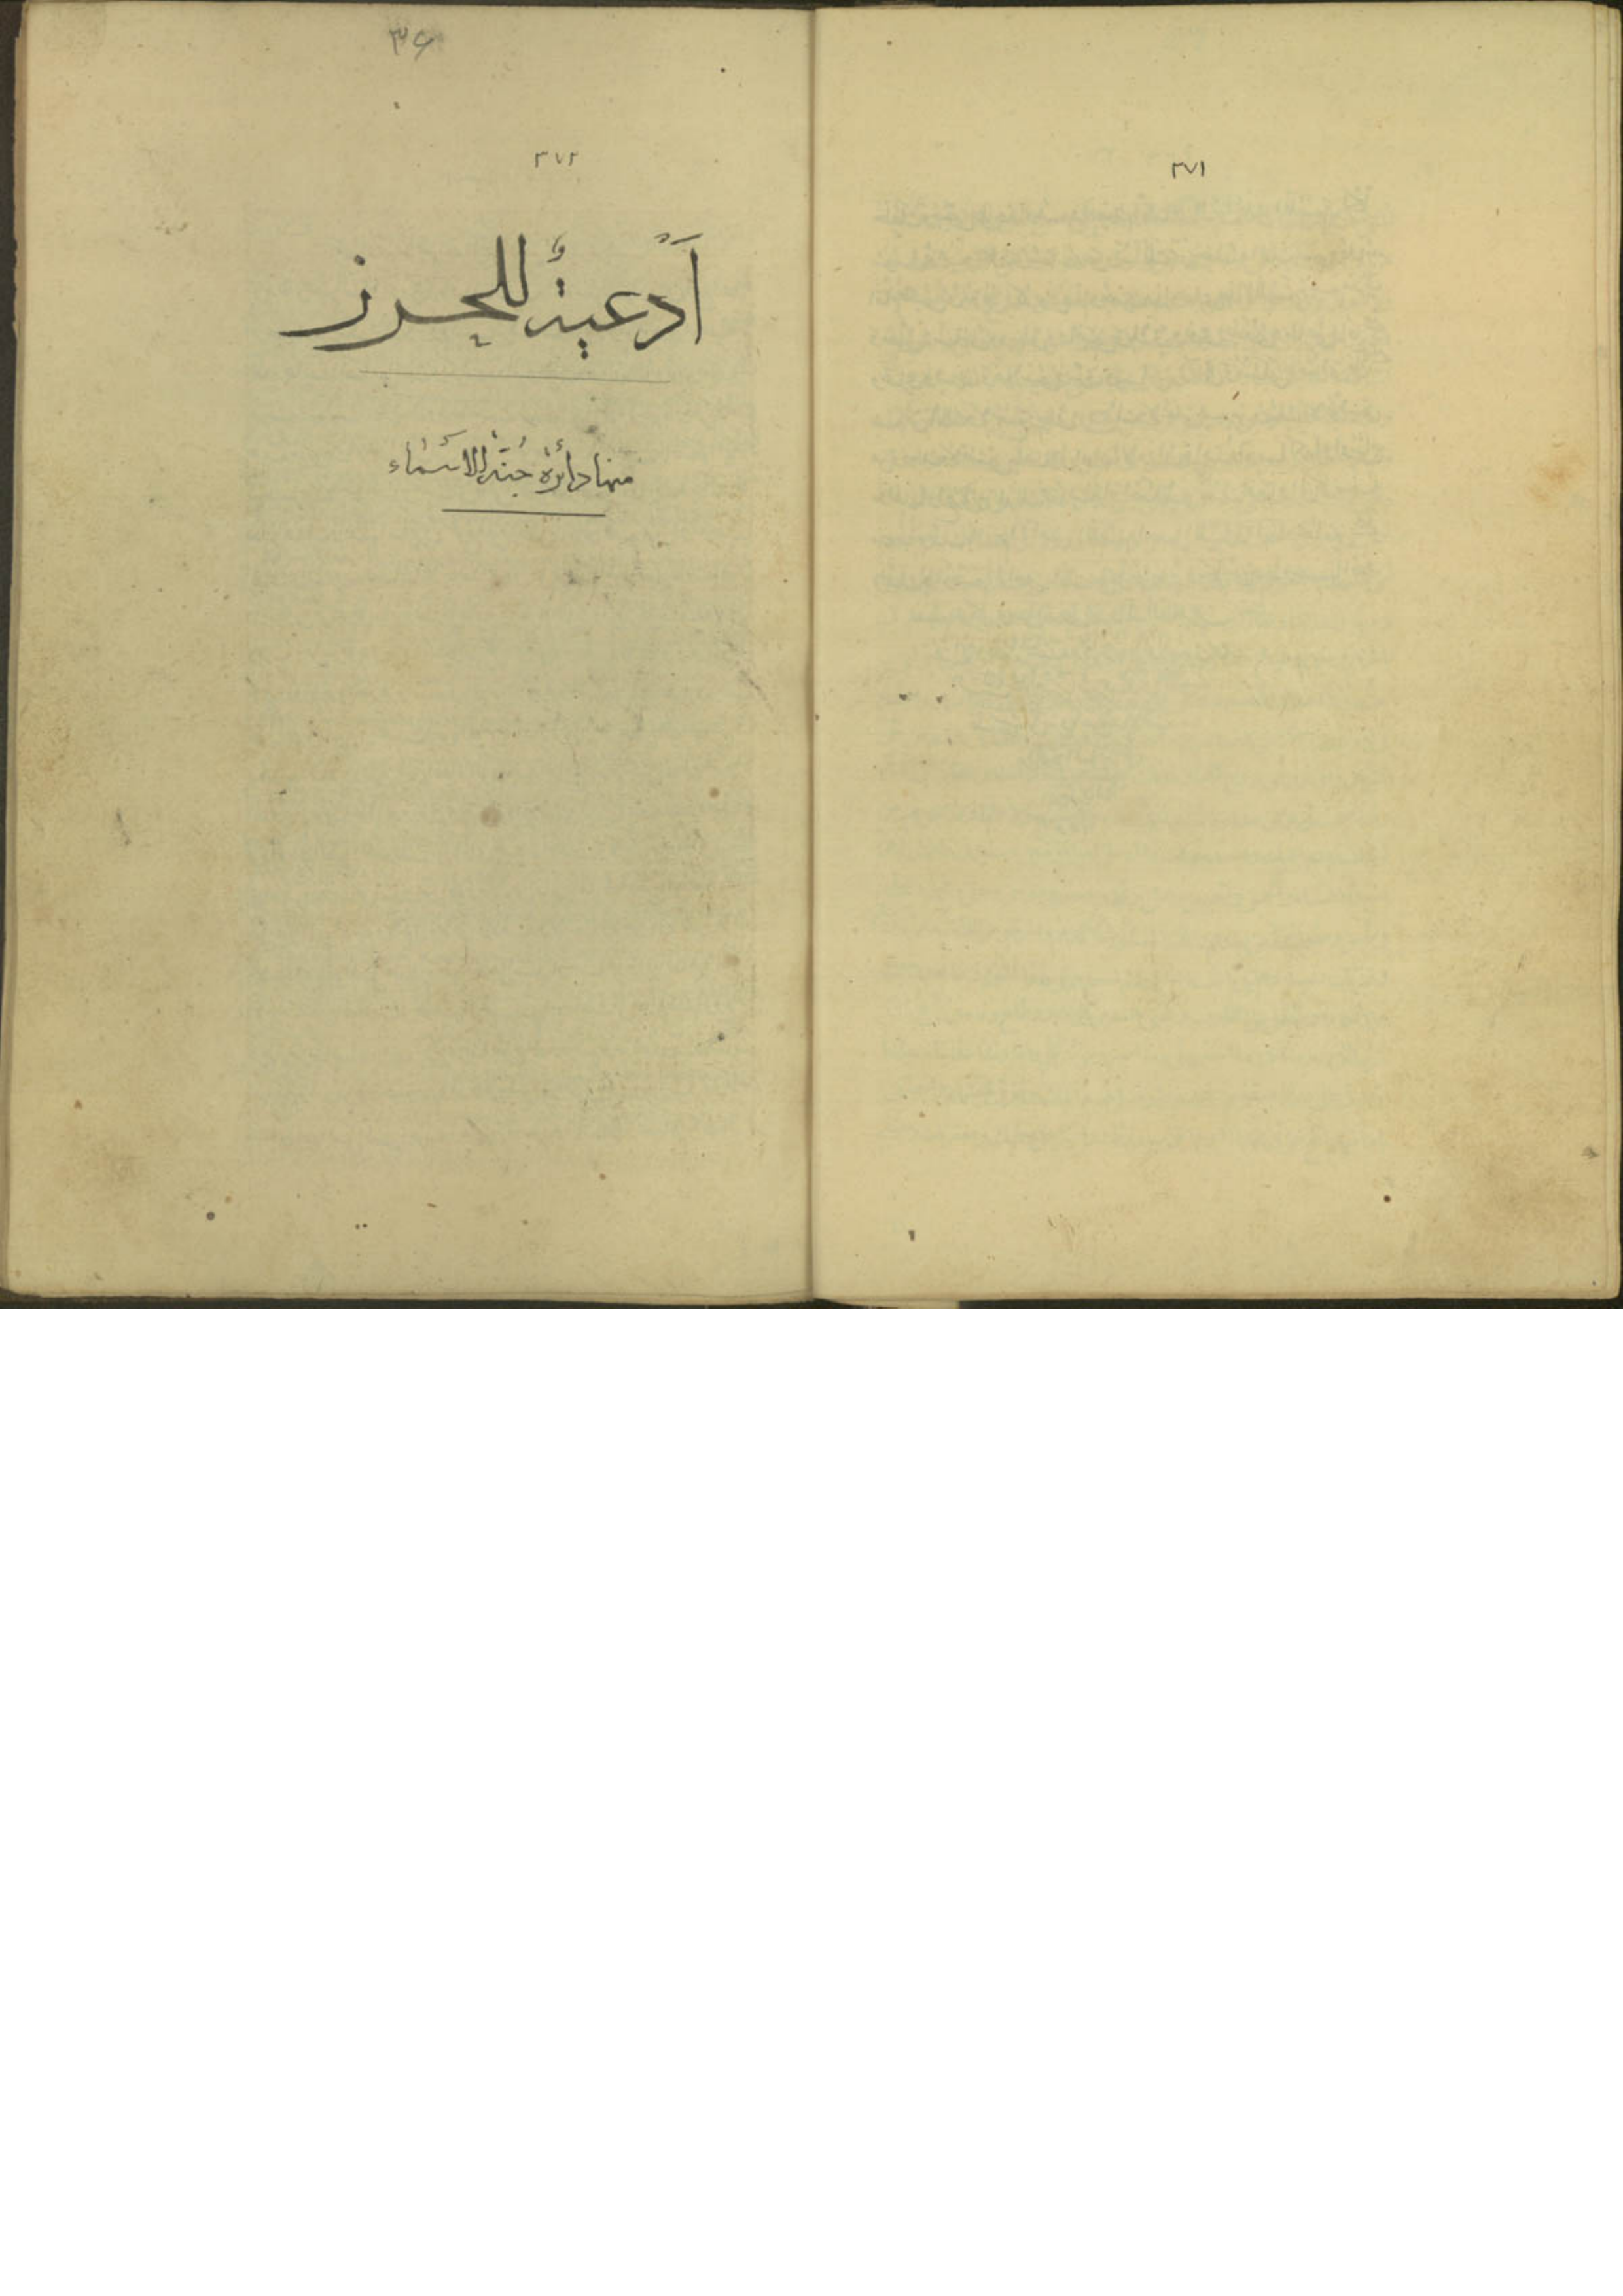 ٣٧١
٣٦
٣٧٢
أَدْعيةٌ للحرز
منها دائرة جُنّة الاسماء